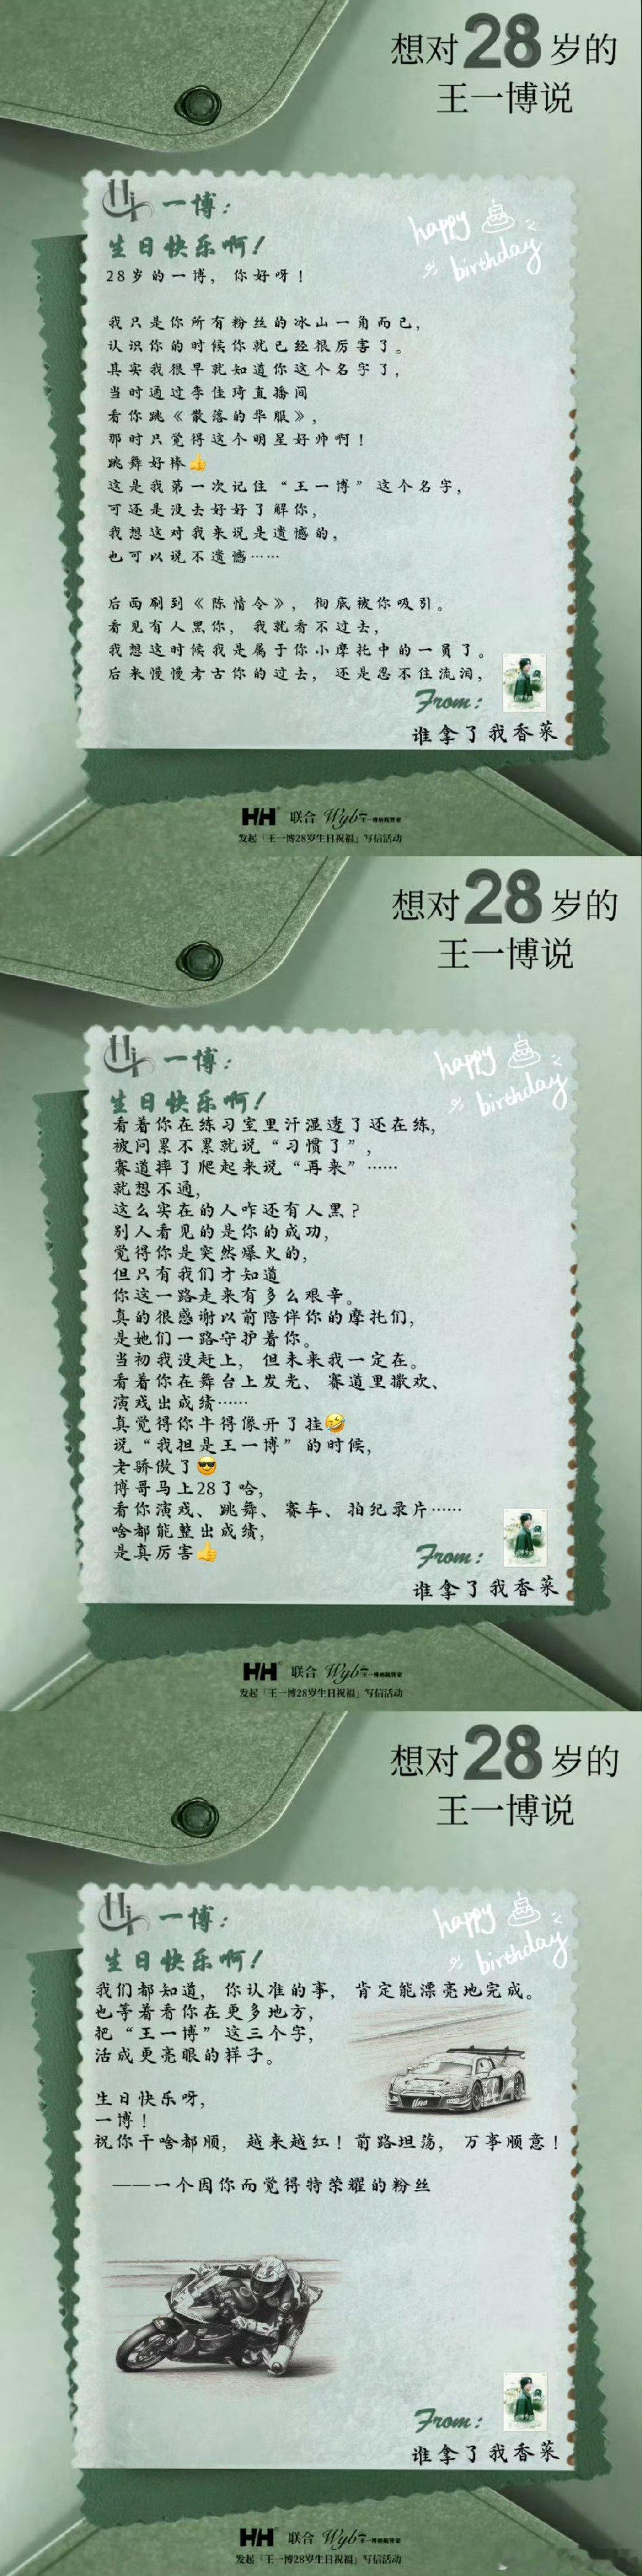 想对28岁的
王一博说
Hi 一博：
生日快乐啊！
happy
birthday
28岁的一博，你好呀！
我只是你所有粉丝的冰山一角而已，
认识你的时候你就已经很厉害了。
其实我很早就知道你这个名字了，
当时通过李佳琦直播间
看你跳《散落的华服》，
那时只觉得这个明星好帅啊！
跳舞好棒👍
这是我第一次记住“王一博”这个名字，
可还是没去好好了解你，
我想这对我来说是遗憾的，
也可以说不遗憾……
后面刷到《陈情令》，彻底被你吸引。
看见有人黑你，我就看不过去，
我想这时候我是属于你小摩托中的一员了。
后来慢慢考古你的过去，还是忍不住流泪，
From：
谁拿了我香菜
HH 联合 Wyb王一博热线管家
发起「王一博28岁生日祝福」写信活动
想对28岁的
王一博说
Hi 一博：
生日快乐啊！
happy
birthday
看着你在练习室里汗湿透了还在练，
被问累不累就说“习惯了”，
赛道摔了爬起来说“再来”……
就想不通，
这么实在的人咋还有人黑？
别人看见的是你的成功，
觉得你是突然爆火的，
但只有我们才知道
你这一路走来有多么艰辛。
真的很感谢以前陪伴你的摩托们，
是她们一路守护着你。
当初我没赶上，但未来我一定在。
看着你在舞台上发光、赛道里撒欢、
演戏出成绩……
真觉得你牛得像开了挂🤣
说“我担是王一博”的时候，
老骄傲了😎
博哥马上28了哈，
看你演戏、跳舞、赛车、拍纪录片……
啥都能整出成绩，
是真厉害👍
From：
谁拿了我香菜
HH 联合 Wyb
发起「王一博28岁生日祝福」写信活动
想对28岁的
王一博说
Hi 一博：
生日快乐啊！
happy
birthday
我们都知道，你认准的事，肯定能漂亮地完成。
也等着看你在更多地方，
把“王一博”这三个字，
活成更亮眼的样子。
生日快乐呀，
一博！
祝你干啥都顺，越来越红！前路坦荡，万事顺意！
——一个因你而觉得特荣耀的粉丝
From：
谁拿了我香菜
HH 联合 Wyb
发起「王一博28岁生日祝福」写信活动